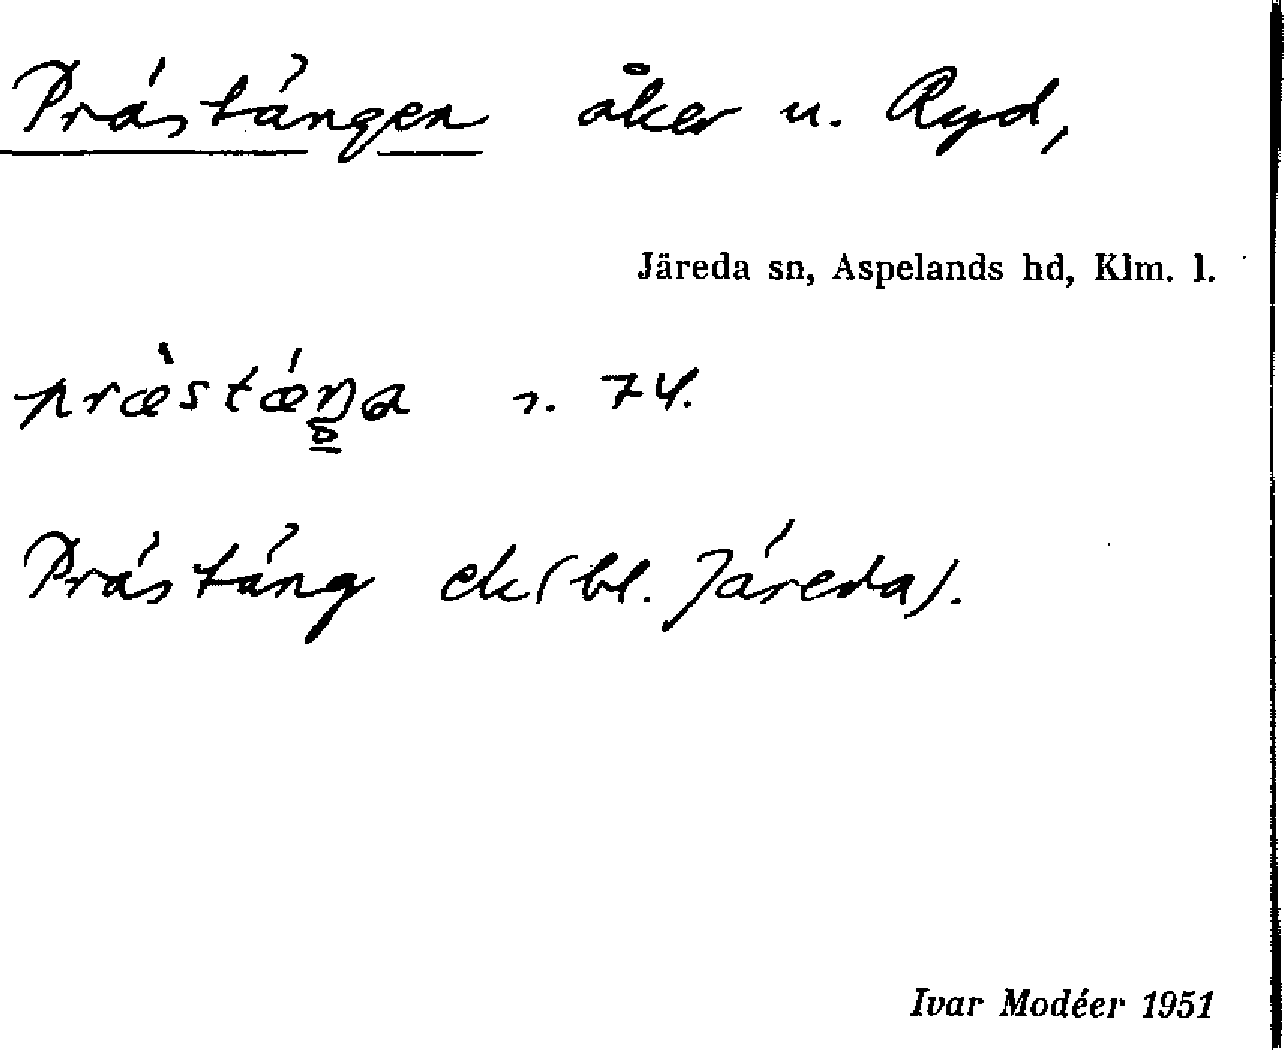 Prästängen åker u. Ryd,
Järeda sn, Aspelands hd, Klm. l.
præ̀stǽŋa s. 74.
Prästäng ek (bl. Järeda).
Ivar Modéer 1951